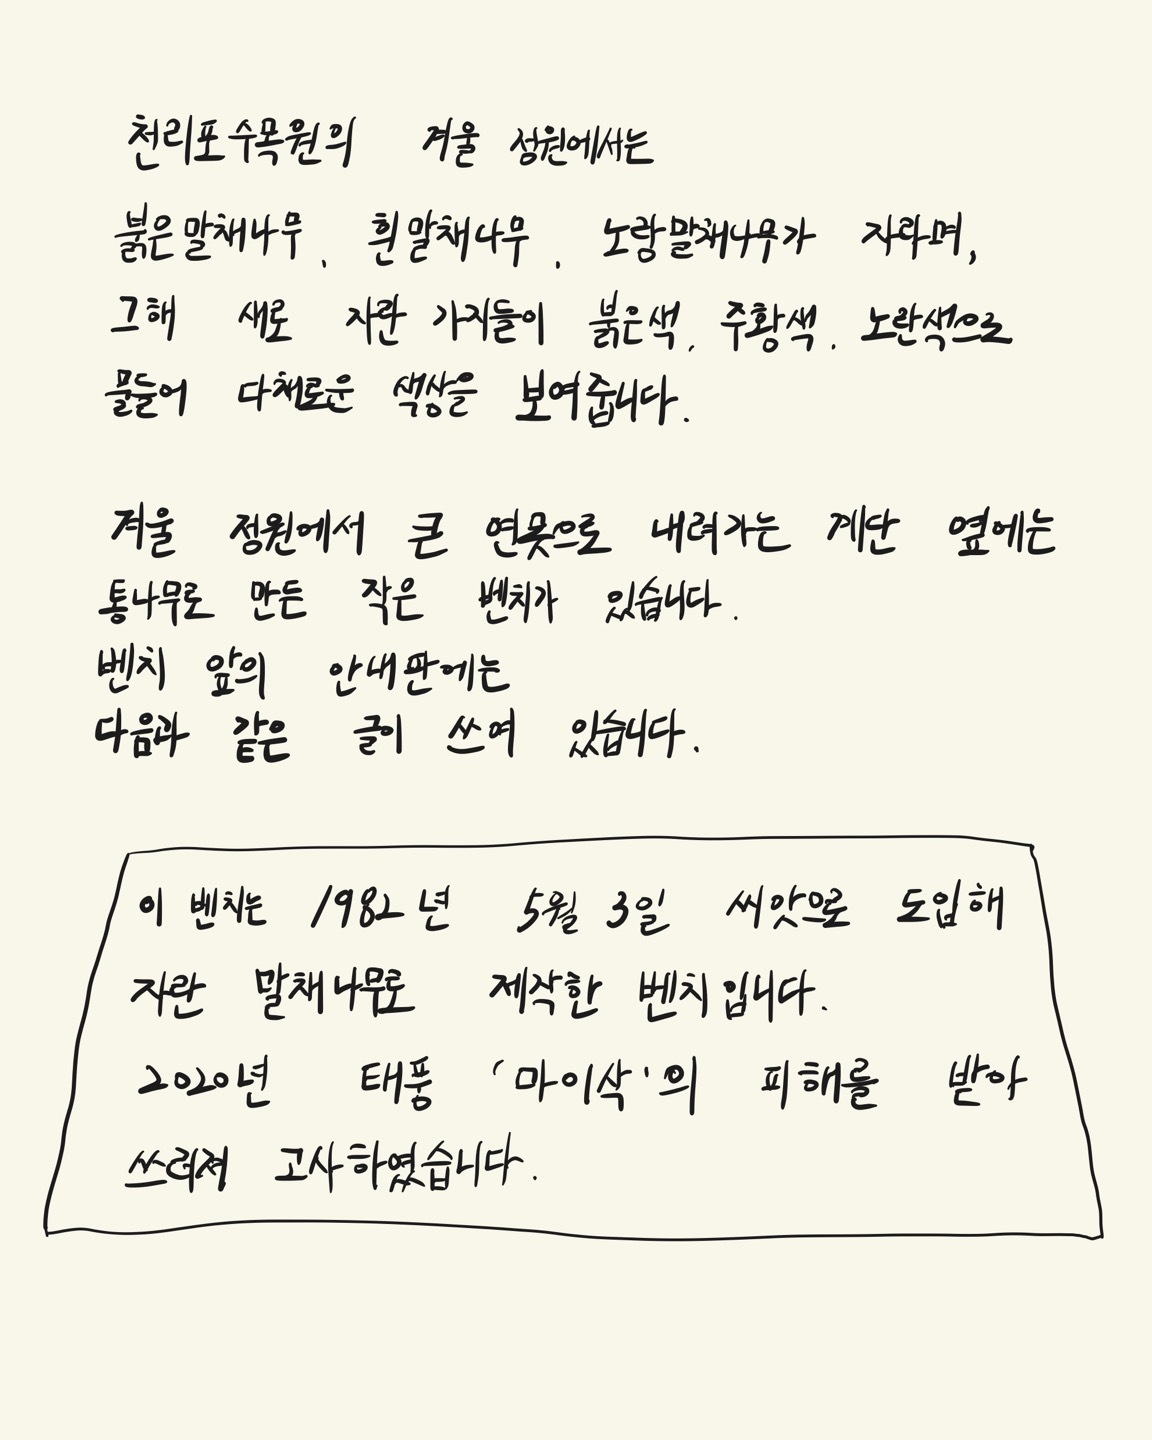 천리포수목원의 겨울 정원에서는
붉은말채나무, 흰말채나무, 노랑말채나무가 자라며,
그해 새로 자란 가지들이 붉은색, 주황색, 노란색으로
물들어 다채로운 색상을 보여줍니다.
겨울 정원에서 큰 연못으로 내려가는 계단 옆에는
통나무로 만든 작은 벤치가 있습니다.
벤치 앞의 안내판에는
다음과 같은 글이 쓰여 있습니다.
이 벤치는 1982년 5월 3일 씨앗으로 도입해
자란 말채나무로 제작한 벤치입니다.
2020년 태풍 '마이삭'의 피해를 받아
쓰러져 고사하였습니다.